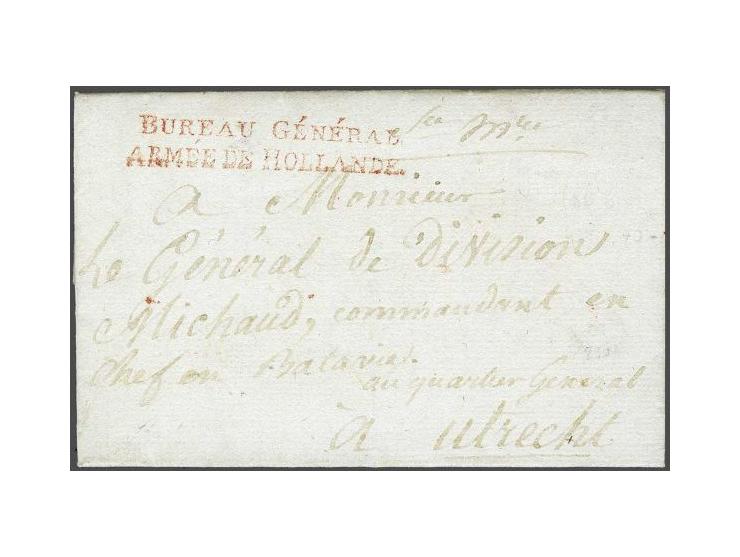 BUREAU GÉNÉRAL
ARMÉE DE HOLLANDE.
a Monsieur
Le Général de Division
Michaud, commandant en
Chef en Batavie.
au quartier General
à utrecht